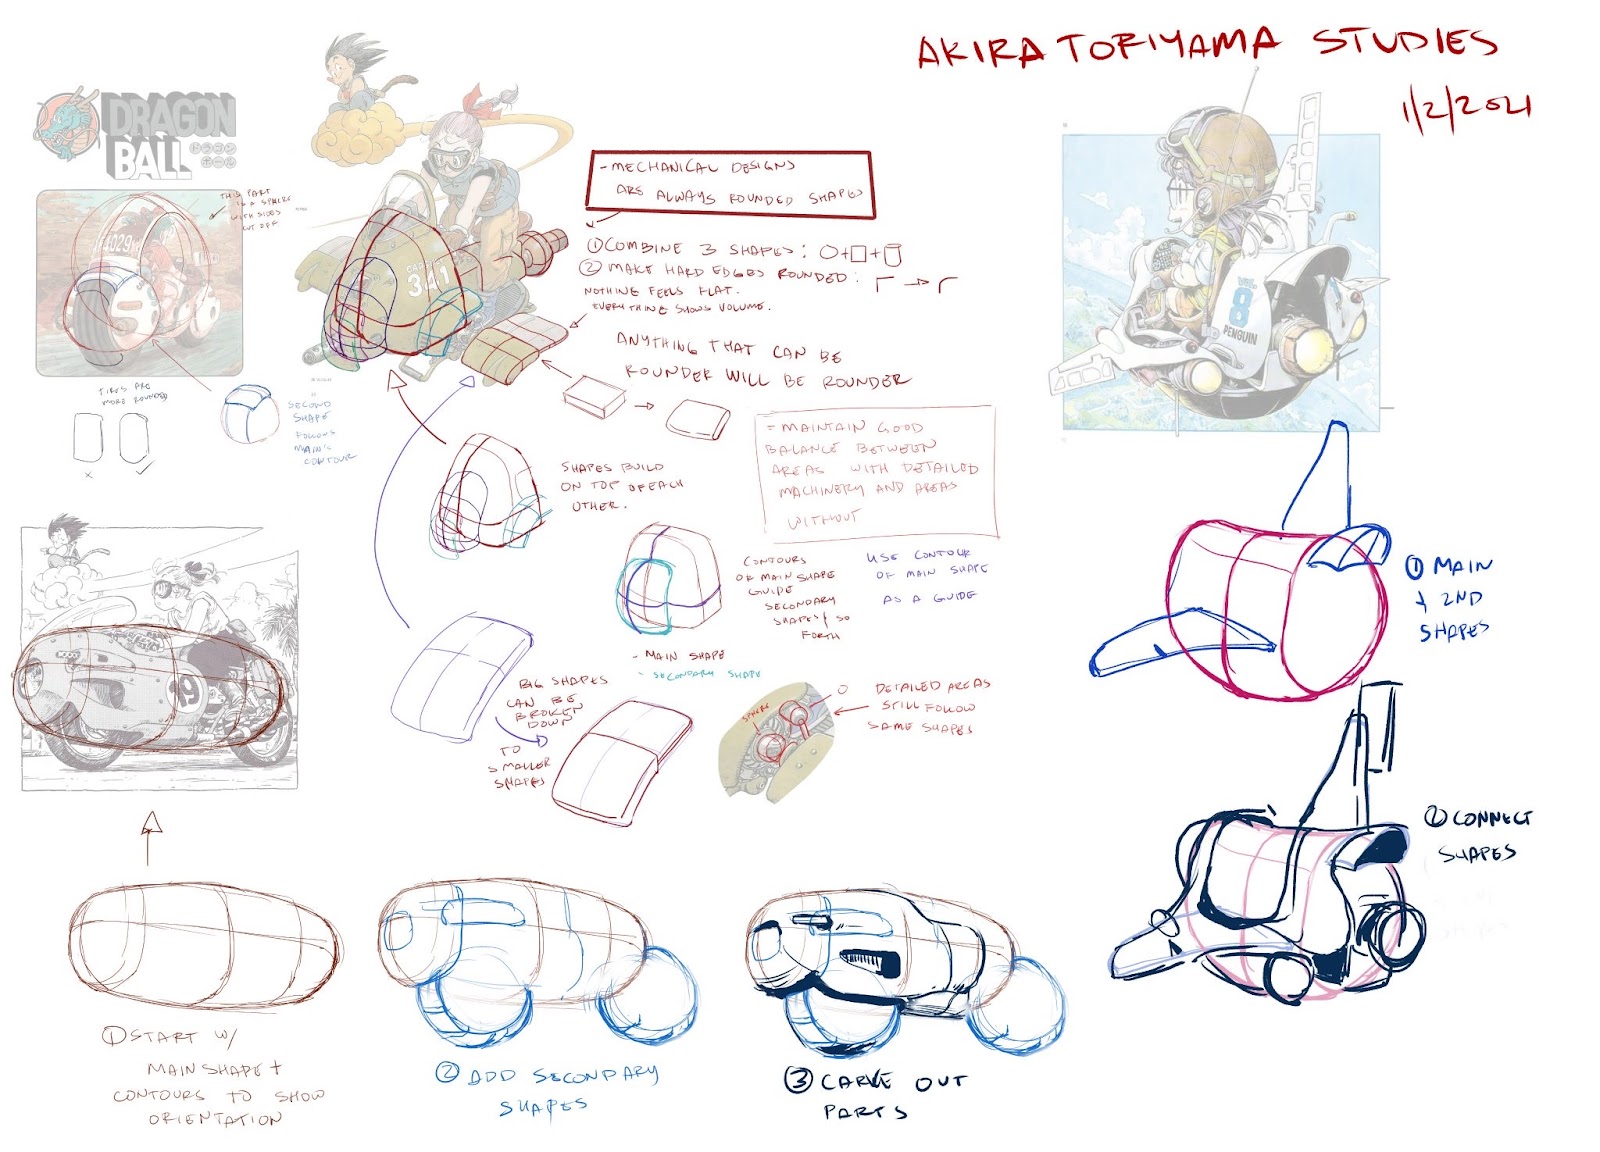 AKIRA TORIYAMA STUDIES
1/2/2021
DRAGON
BALL
ドラゴン
ボール
THIS PART
IS A SPHERE
WITH SIDES
CUT OFF
TIRES ARE
MORE ROUNDED
= SECOND
SHAPE
FOLLOWS
MAIN'S
CONTOUR
341
- MECHANICAL DESIGNS
ARE ALWAYS ROUNDED SHAPES
① COMBINE 3 SHAPES:
② MAKE HARD EDGES ROUNDED:
NOTHING FEELS FLAT.
EVERYTHING SHOWS VOLUME.
ANYTHING THAT CAN BE
ROUNDER WILL BE ROUNDER
= MAINTAIN GOOD
BALANCE BETWEEN
AREAS WITH DETAILED
MACHINERY AND AREAS
WITHOUT
SHAPES BUILD
ON TOP OF EACH
OTHER.
CONTOURS
OF MAIN SHAPE
GUIDE
SECONDARY
SHAPES / SO
FORTH
USE CONTOUR
OF MAIN SHAPE
AS A GUIDE
- MAIN SHAPE
- SECONDARY SHAPE
BIG SHAPES
CAN BE
BROKEN
DOWN
TO
SMALLER
SHAPES
SPHERE
DETAILED AREAS
STILL FOLLOW
SAME SHAPES
19
8
PENGUIN
① MAIN
+ 2ND
SHAPES
② CONNECT
SHAPES
① START W/
MAIN SHAPE +
CONTOURS TO SHOW
ORIENTATION
② ADD SECONDARY
SHAPES
③ CARVE OUT
PARTS